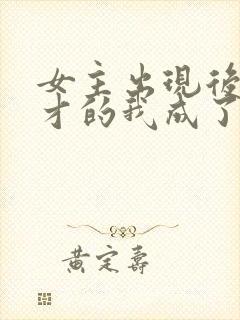 女主出現後
才的我成了
黃定壽